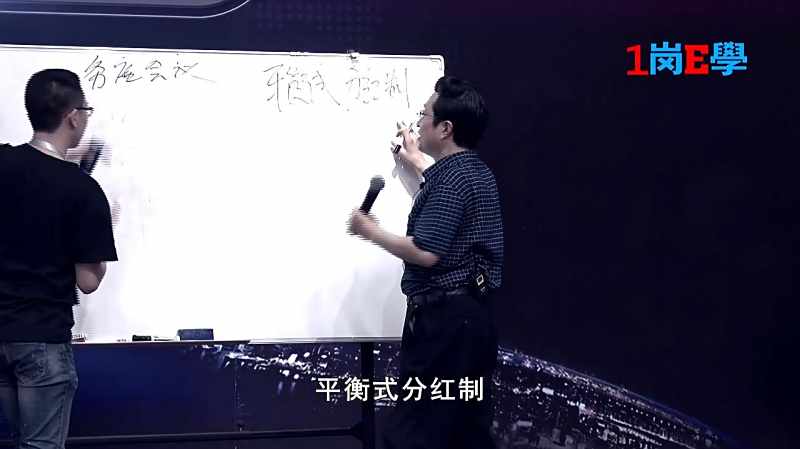 1岗E學
平衡式分红制
平衡式分红制